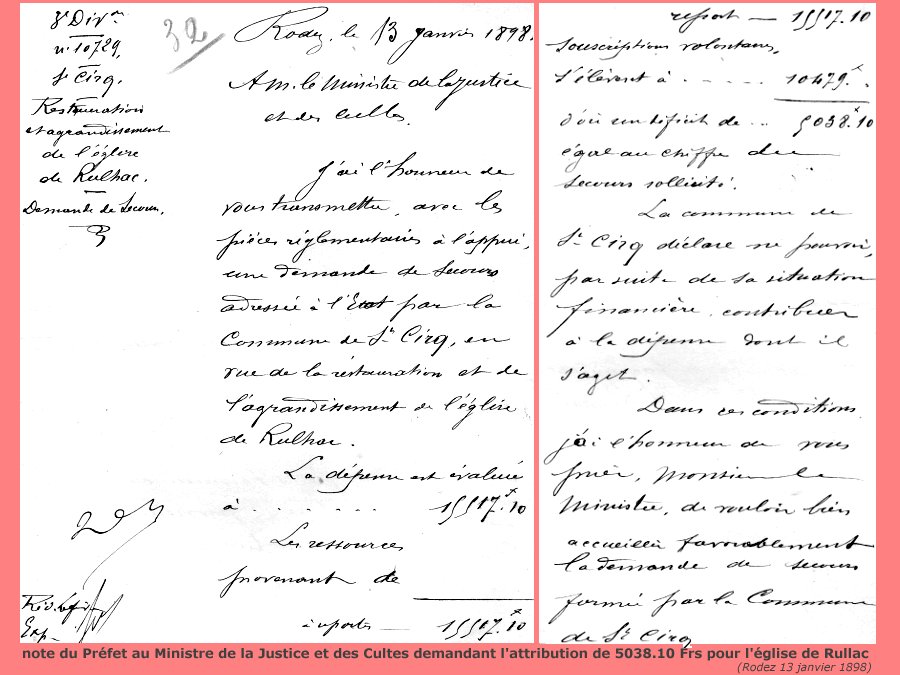 3e Divon
n. 10729.
St Cirq.
Restauration
et agrandissement
de l'église
de Rulhac.
Demande de Secours.
32
Rodez, le 13 janvier 1898.
A M. le Ministre de la Justice
et des Cultes.
J'ai l'honneur de
vous transmettre, avec les
pièces réglementaires à l'appui,
une demande de secours
adressée à l'Etat par la
Commune de St Cirq, en
vue de la restauration et de
l'agrandissement de l'église
de Rulhac.
La dépense est évaluée
à . . . . . . . 15517.10
Les ressources
provenant de
à reporter — 15517.10
report — 15517.10
souscriptions volontaires,
s'élèvent à . . . . . 10479. .
d'où un déficit de . . 5038.10
égal au chiffre du
secours sollicité.
La commune de
St Cirq déclare ne pouvoir,
par suite de sa situation
financière, contribuer
à la dépense dont il
s'agit.
Dans ces conditions
j'ai l'honneur de vous
prier, Monsieur le
Ministre, de vouloir bien
accueillir favorablement
la demande de secours
formée par la Commune
de St Cirq
note du Préfet au Ministre de la Justice et des Cultes demandant l'attribution de 5038.10 Frs pour l'église de Rullac
(Rodez 13 janvier 1898)